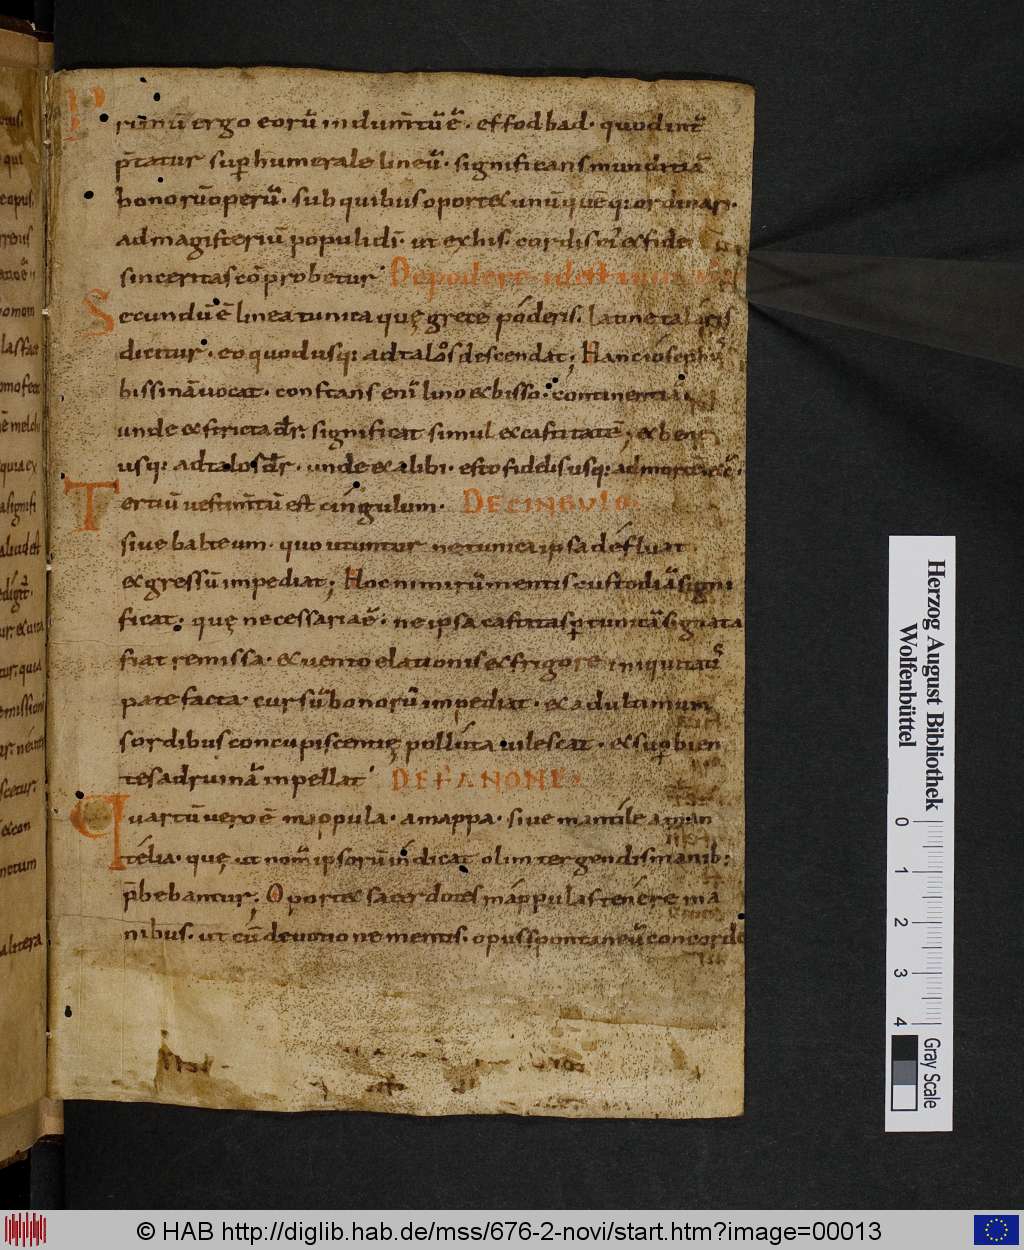 Primū ergo eorū indumtū ē. effod bad. quod int̄
p̄tatur sup̄humerale lineū. significans munditiā
bonorū operū. sub quibus oportet unūquēq: ordinari.
ad magisteriū populi dī. ut ex his cordis ei et fide
sinceritas cōprobetur. De podere. id est
Secundū ē linea tunica quę grece poderis. latine talaris
dicitur. eo quod usq: ad talos descendat; Hanc ioseph
bissinā uocat. constans enī lino et bisso. continentiā
unde et stricta dr̄. significat simul et castitatē; et bene
usq: ad talos dr̄. unde et alibi. esto fidelis usq: ad mortē
Tertiū uestimtū est cingulum. DE CINGULO.
siue balteum. quo utuntur ne tunica ipsa defluat
et gressū impediat; Hoc nimirū mentis custodiā signi
ficat. quę necessaria ē. ne ipsa castitas p̄ tunicā signata
fiat remissa. et uento elationis et frigore iniquitatū
patefacta. cursū bonorū impediat. et ad ultimum
sordibus concupiscentię polluta uilescat. et sup̄bien
tes ad ruinā inpellat. DE FANONE.
Quartū uero ē mappula. a mappa. siue mantile a man
telia. quę ut nom̄ ipsorū indicat olim tergendis manib:
p̄bebantur; Oportet sacerdotes mappulas tenere in ma
nibus. ut cū deuotione mentis. opus spontaneū concorde
Herzog August Bibliothek
Wolfenbüttel
0 1 2 3 4
Gray Scale
© HAB http://diglib.hab.de/mss/676-2-novi/start.htm?image=00013